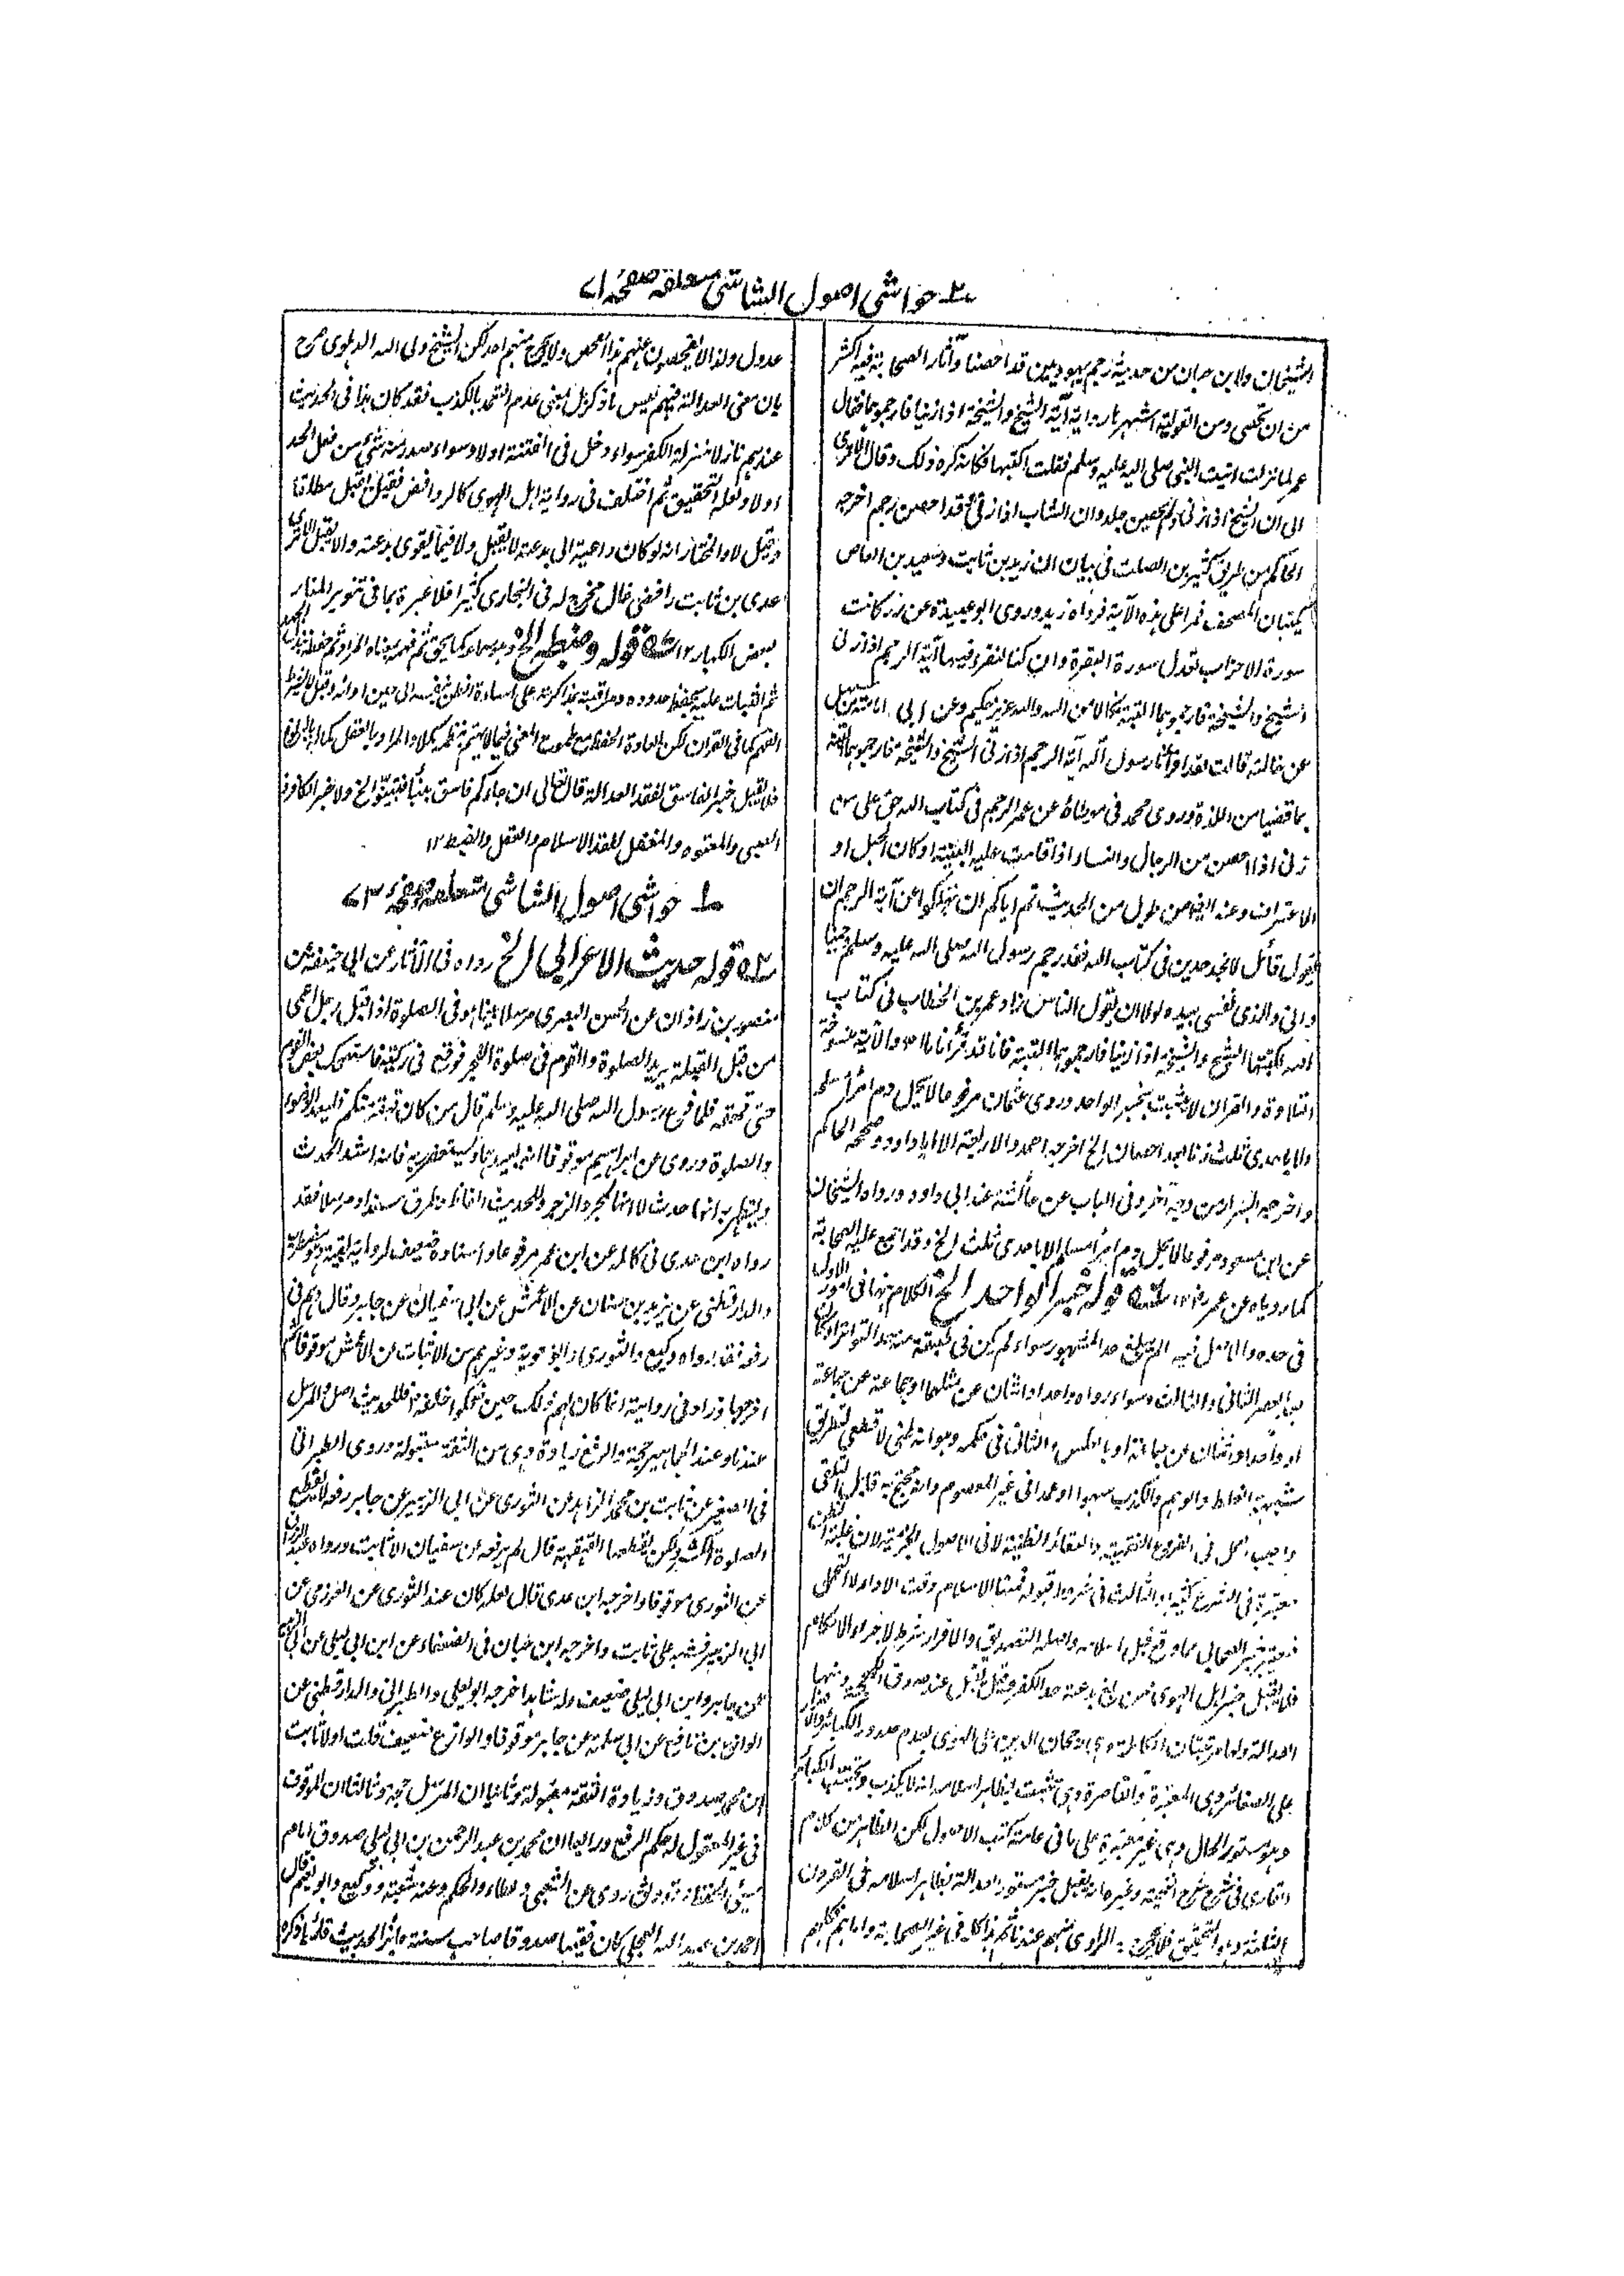 حواشی اصول الشاشی متعلقہ صفحہ ۷۱
الشیخان ولابن حبان من حدیثہ رجم یہودیین قد احصنا وآثار الصحابة فیه اکثر
من ان تحصی ومن القولیة اشتهر بار روایة آیة الشیخ والشیخة اذا زنیا فارجموهما فقال
عمر لما نزلت اتیت النبی صلی الله علیه وسلم فقلت اکتبها فکانه کره ذلک وقال الا تری
الی ان الشیخ اذا زنی ولم یحصن جلد وان الشاب اذا زنی وقد احصن رجم اخرجه
الحاکم من طریق کثیر بن الصلت فی بیان ان زید بن ثابت وسعید بن العاص
یکتبان المصحف فمرا علی هذه الآیة فرواه زید وروی ابو عبیدة عن زر کانت
سورة الاحزاب تعدل سورة البقرة وان کنا لنقرء فیها آیة الرجم اذا زنی
الشیخ والشیخة فارجموهما البتة نکالا من الله والله عزیز حکیم وعن ابی امامة بن سهل
عن خالته قالت لقد اقرأنا رسول الله آیة الرجم اذا زنی الشیخ والشیخة فارجموهما البتة
بما قضیا من اللذة وروی محمد فی موطاه عن عمر الرجم فی کتاب الله حق علی من
زنی اذا احصن من الرجال والنساء اذا قامت علیه البینة او کان الحبل او
الاعتراف وعند ایضا من طویل من الحدیث ثم ایاکم ان تهلکوا عن آیة الرجم ان
یقول قائل لا نجد حدین فی کتاب الله فقد رجم رسول الله صلی الله علیه وسلم ورجمنا
وانی والذی نفسی بیده لولا ان یقول الناس زاد عمر بن الخطاب فی کتاب
الله لکتبتها الشیخ والشیخة اذا زنیا فارجموهما البتة فانا قد قرأناها ۱۲ والآیة منسوخة
التلاوة والقران لا یثبت بخبر الواحد وروی عثمان مرفوعا لا یحل دم امرأ مسلم
الا باحدی ثلث زنا بعد احصان الخ اخرجه احمد والاربعة الا ابا داود وصححه الحاکم
واخرجه البزار من وجه آخر وفی الباب عن عائشة عند ابی داود ورواه الشیخان
عن ابن مسعود مرفوعا لا یحل دم امرأ مسلم الا باحدی ثلث الخ وقد اجمع علیه الصحابة
کما رویاه عن عمر ۱۲ قوله خبر الواحد الخ الکلام ههنا فی امور الاول
فی حده والاصل فیه انه لم یبلغ حد المشهور سواء لم یکن فی طبقة منه حد التواتر او کان
بعد العصر الثانی والثالث وسواء رواه واحد او اثنان عن مثلهما او جماعة عن جماعة
او واحد او اثنان عن جماعة او بالعکس والثانی فی حکمه وهو انه ظنی لا قطعی لتطریق
شبهة الغلط والوهم والکذب سهوا او عمدا فی غیر المعصوم وانه حجة قابل التلقی
واجب العمل فی الفروع الفقهیة والعقائد الظنیة لا فی الاصول الجزمیة لان غلبة الظن
معتبرة فی الشرع کثیرا والثالث فی شروط قبوله فمنها الاسلام وقت الاداء لا التحمل
فیعتبر خبر الصحابی بما وقع قبل اسلامه واصله التصدیق والاقرار شرط لاجراء الاحکام
فلا یقبل خبر اهل الهوی ممن بلغ بدعته حد الکفر وقیل یقبل عند صدوق اللهجة ومنها
العدالة ولها مرتبتان الکاملة وهی رجحان الدین علی الهوی بعدم صدور الکبائر والاصرار
علی الصغائر وهی المعتبرة والقاصرة وهی تثبت بظاهر اسلامه انه لا یکذب ویجتنب الکبائر
وهو مستور الحال وهی غیر معتبرة علی ما فی عامة کتب الاصول لکن الظاهر من کلام
القاری فی شرح شرح النخبة وغیره انه یقبل خبر مستور العدالة بظاهر اسلامه فی القرون
الثلثة وهو التحقیق الراوی منهم عندنا ثم هذا کله فی غیر الصحابة واما هم فکلهم
عدول ولذا لا یفحصون عنهم هذا الفحص ولا یجرح منهم احد لکن الشیخ ولی الله الدهلوی صرح
بان معنی العدالة فیهم لیس ما ذکر بل یعنی عدم التعمد بالکذب فقد کان هذا فی الحدیث
عندهم نازلا منزلة الکفر سواء دخل فی الفتنة اولا وسواء صدر منه شیء من فعل الحد
اولا ولعله التحقیق ثم اختلف فی روایة اهل الهوی کالروافض فقیل تقبل مطلقا
وقیل لا والمختار انه لو کان داعیة الی بدعته لا یقبل ولا فیما یقوی بدعته والا یقبل الا تری
عدی بن ثابت رافضی غال مخرج له فی البخاری کثیرا فلا عبرة بما فی تنویر المنار
بعض الکبار ۱۲ قوله وضبطه الخ وهو سماعه کما یحق ثم فهم معناه المراد ثم حفظه ببذل الجهد
ثم الثبات علیه بحفظ حدوده ومراقبة بمذاکرته علی اساءة الظن بنفسه الی حین ادائه وقیل لا یشترط
الفهم کما فی القران لکن العادة الحفظ مع فهم المعنی
فلا یقبل خبر الفاسق لفقد العدالة قال تعالی ان جاءکم فاسق بنبأ فتبینوا الخ ولا خبر الکافر و
الصبی والمعتوه والمغفل لفقد الاسلام والعقل والضبط ۱۲
حواشی اصول الشاشی متعلقہ صفحہ ۷۳
قوله حدیث الاعرابی الخ رواه فی الآثار عن ابی حنیفة عن
منصور بن زاذان عن الحسن البصری مرسلا بینا هو فی الصلوة اذ اقبل رجل اعمی
من قبل القبلة یرید الصلوة والقوم فی صلوة الفجر فوقع فی رکیة فاستضحک بعض القوم
حتی قهقه فلما فرغ رسول الله صلی الله علیه وسلم قال من کان قهقه منکم فلیعد الوضوء
والصلوة وروی عن ابراهیم موقوفا انه یعیدهما ویستغفر ربه فانه اشد الحدث
وللحدیث الفاظ وطرق مسندا ومرسلا فقد
رواه ابن عدی فی کامله عن ابن عمر مرفوعا واسناده ضعیف لروایة بقیة
والدارقطنی عن یزید بن سنان عن الاعمش عن ابی سفیان عن جابر وقال وهم فی
رفعه فقد رواه وکیع والثوری وابو معویة وغیرهم من الاثبات عن الاعمش موقوفا ثم
اخرجها وزاد فی روایة انما کان لهم ذلک حین ضحکوا خلفه فللحدیث اصل والمرسل
عندنا وعند الجماهیر حجة والرفع زیادة وهی من الثقة مقبولة وروی الطبرانی
فی الصغیر عن ثابت بن محمد الزاهد عن الثوری عن ابی الزبیر عن جابر رفعه لا یقطع
الصلوة الکشر ولکن یقطعها القهقهة قال لم یرفعه عن سفیان الا ثابت ورواه عبد الرزاق
عن الثوری موقوفا واخرجه ابن عدی قال لعله کان عند الثوری عن العرزمی عن
ابی الزبیر فشبه علی ثابت واخرجه ابن حبان فی الضعفاء عن ابن ابی لیلی عن ابی الزبیر
عن جابر وابن ابی لیلی ضعیف وله شاهد اخرجه ابو یعلی والطبرانی والدارقطنی عن
الوازع بن نافع عن ابی سلمة عن جابر موقوفا والوازع ضعیف قلت اولا ثابت
ابن محمد صدوق وزیادة الثقة مقبولة وثانیا ان المرسل حجة وثالثا ان الموقوف
فی غیر المعقول له حکم الرفع ورابعا ان محمد بن عبد الرحمن بن ابی لیلی صدوق امام
سیئ الحفظ روی عن الشعبی وعطاء والحکم وعنه شعبة ووکیع وابو نعیم قال
احمد بن عبد الله العجلی کان فقیها صدوقا صاحب سنة جائز الحدیث قارئا ذکره